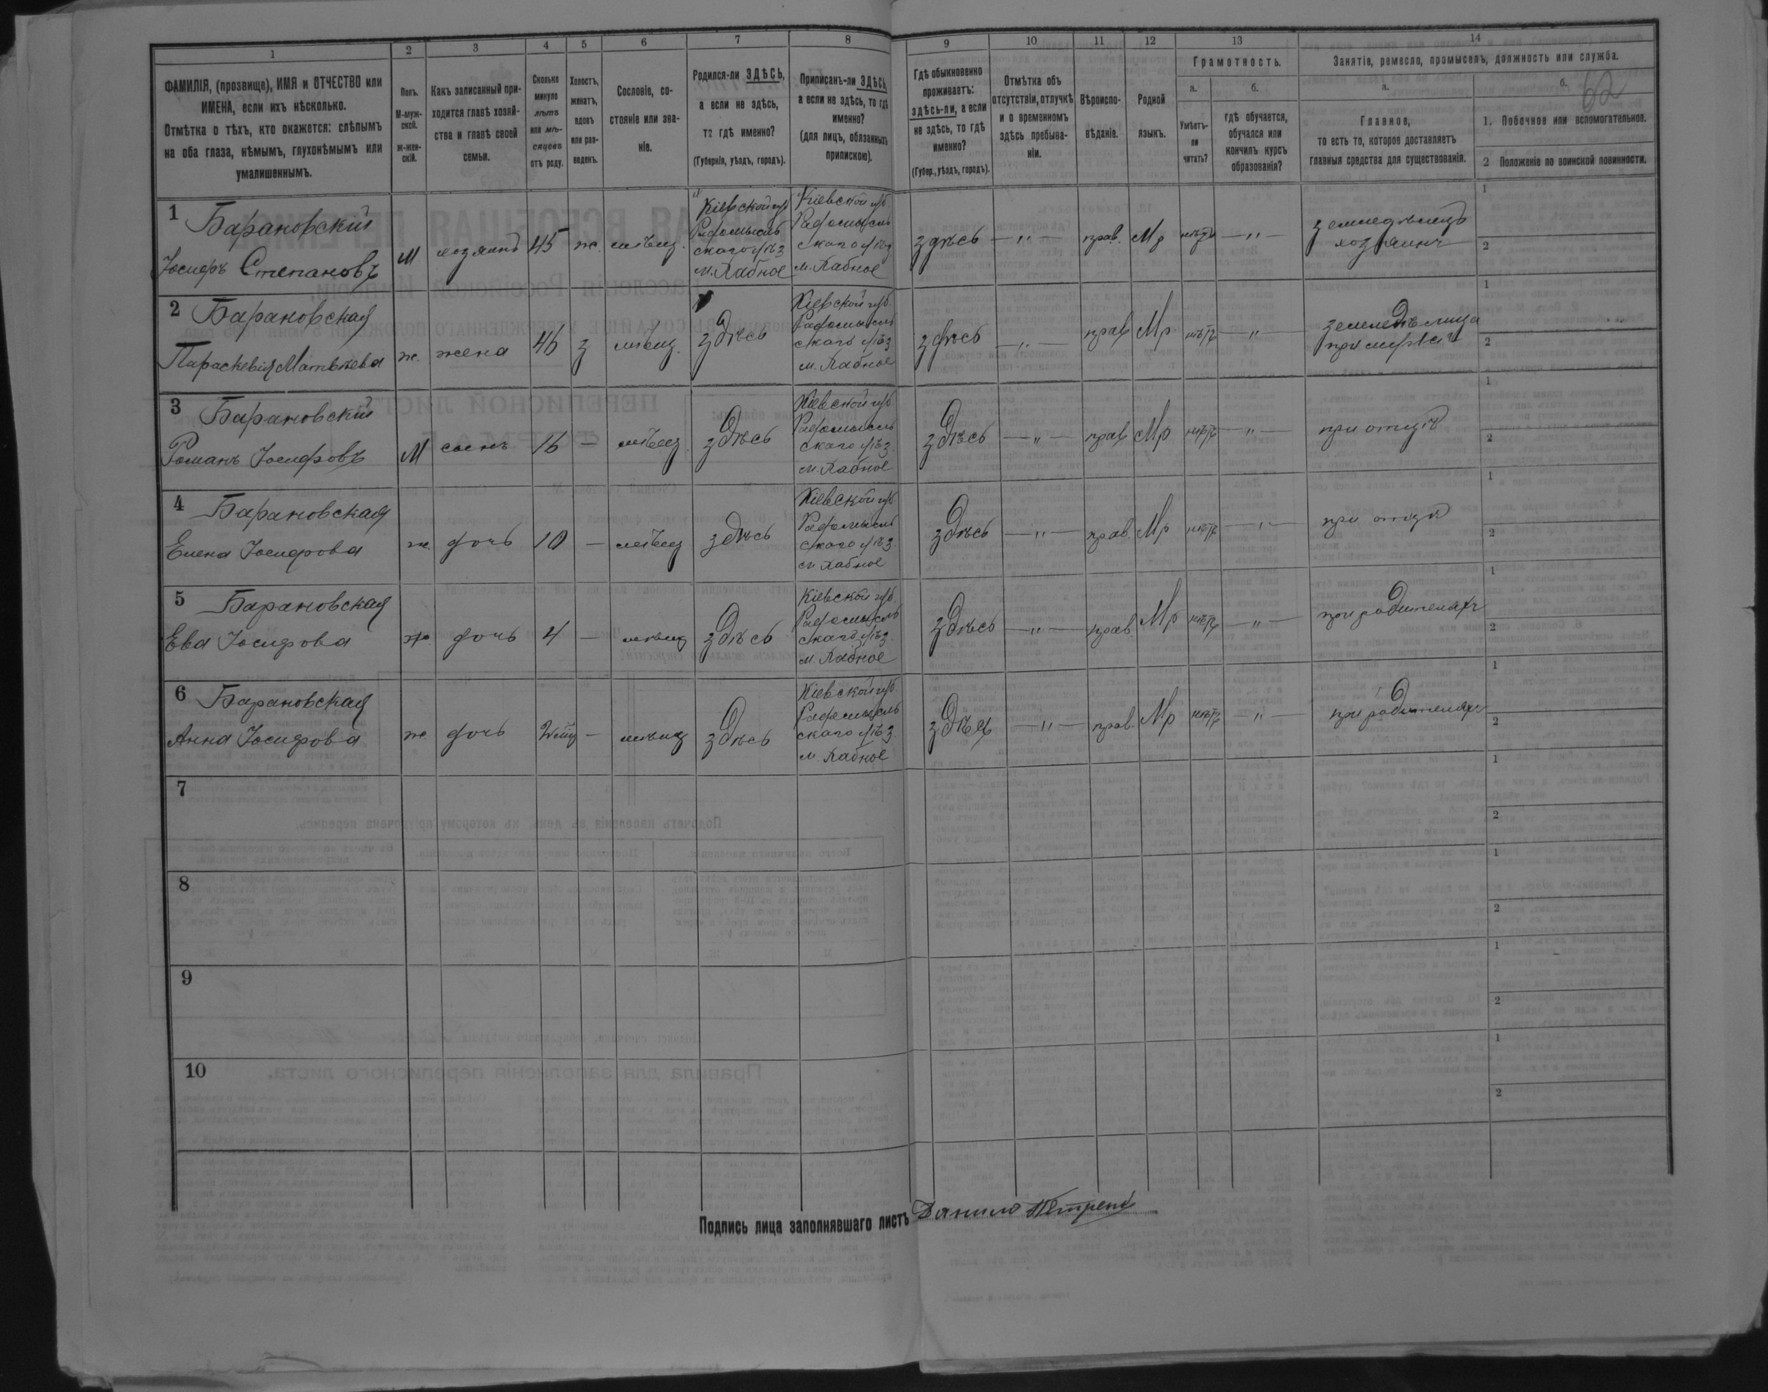 1 2 3 4 5 6 7 8 9 10 11 12 13 14
ФАМИЛІЯ, (прозвище), ИМЯ и ОТЧЕСТВО или
ИМЕНА, если ихъ нѣсколько.
Отмѣтка о тѣхъ, кто окажется: слѣпымъ
на оба глаза, нѣмымъ, глухонѣмымъ или
умалишеннымъ.
Полъ.
М-муж-
ской.
Ж-жен-
скій.
Какъ записанный при-
ходится главѣ хозяй-
ства и главѣ своей
семьи.
Сколько
минуло
лѣтъ
или мѣ-
сяцевъ
отъ роду.
Холостъ,
женатъ,
вдовъ
или раз-
веденъ.
Сословіе, со-
стояніе или зва-
ніе.
Родился-ли ЗДѢСЬ,
а если не здѣсь,
то гдѣ именно?
(Губернія, уѣздъ, городъ).
Приписанъ-ли ЗДѢСЬ,
а если не здѣсь, то гдѣ
именно?
(для лицъ, обязанныхъ
припискою).
Гдѣ обыкновенно
проживаетъ:
здѣсь-ли, а если
не здѣсь, то гдѣ
именно?
(Губер., уѣздъ, городъ).
Отмѣтка объ
отсутствіи, отлучкѣ
и о временномъ
здѣсь пребыва-
ніи.
Вѣроиспо-
вѣданіе.
Родной
языкъ.
Грамотность.
а.
Умѣетъ-
ли
читать?
б.
гдѣ обучается,
обучался или
кончилъ курсъ
образованія?
Занятіе, ремесло, промыселъ, должность или служба.
а.
Главное,
то есть то, которое доставляетъ
главныя средства для существованія.
б.
62
1. Побочное или вспомогательное.
2 Положеніе по воинской повинности.
1 Барановскій
Іосифъ Степановъ
М хозяинъ 45 ж. мѣщ.
Кіевской губ
Радомысль
скаго уѣз
м. Хабное
Кіевской губ
Радомысль
скаго уѣз
м. Хабное
здѣсь — „ — прав. Мр нѣтъ — „ —
земледѣлецъ
хозяинъ
1
2
2 Барановская
Параскевія Матвѣева
ж. жена 45 з мѣщ. здѣсь
Кіевской губ
Радомысль
скаго уѣз
м. Хабное
здѣсь — „ — прав Мр нѣтъ — „
земледѣлица
1
2
3 Барановскій
Романъ Іосифовъ
М сынъ 16 — мѣщ здѣсь
Кіевской губ
Радомысль
скаго уѣз
м. Хабное
здѣсь — „ — прав Мр нѣтъ — „ —
при отцѣ
1
2
4 Барановская
Елена Іосифова
ж дочь 10 — мѣщ здѣсь
Кіевской губ
Радомысль
скаго уѣз
м. Хабное
здѣсь — „ — прав. Мр нѣтъ — „ —
при отцѣ
1
2
5 Барановская
Ева Іосифова
ж. дочь 4 — мѣщ здѣсь
Кіевской губ
Радомысль
скаго уѣз
м. Хабное
здѣсь — „ — прав Мр нѣтъ — „ —
при родителяхъ
1
2
6 Барановская
Анна Іосифова
ж дочь — мѣщ здѣсь
Кіевской губ
Радомысль
скаго уѣз
м. Хабное
здѣсь — „ — прав. Мр нѣтъ — „ —
при родителяхъ
1
2
7
1
2
8
1
2
9
1
2
10
1
2
Подпись лица заполнявшаго листъ Данило Петренко